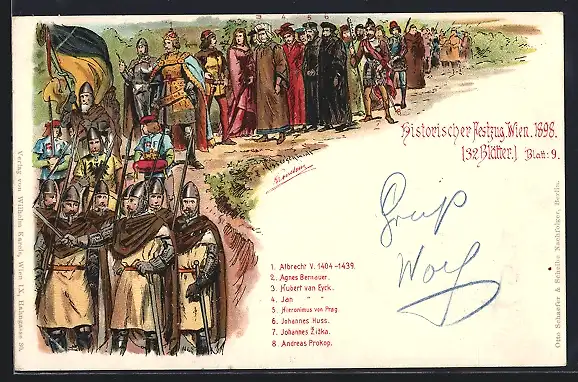 3 4 5 6
Historischer Festzug, Wien. 1898.
[32 Blätter.] Blatt: 9.
Gruß
Wolf
1. Albrecht V. 1404-1439.
2. Agnes Bernauer.
3. Hubert van Eyck.
4. Jan " "
5. Hieronimus von Prag
6. Johannes Huss.
7. Johannes Žižka.
8. Andreas Prokop.
Verlag von Wilhelm Knorck, Wien IX, Hahngasse 30.
Otto Schaefer & Scheibe Nachfolger, Berlin.